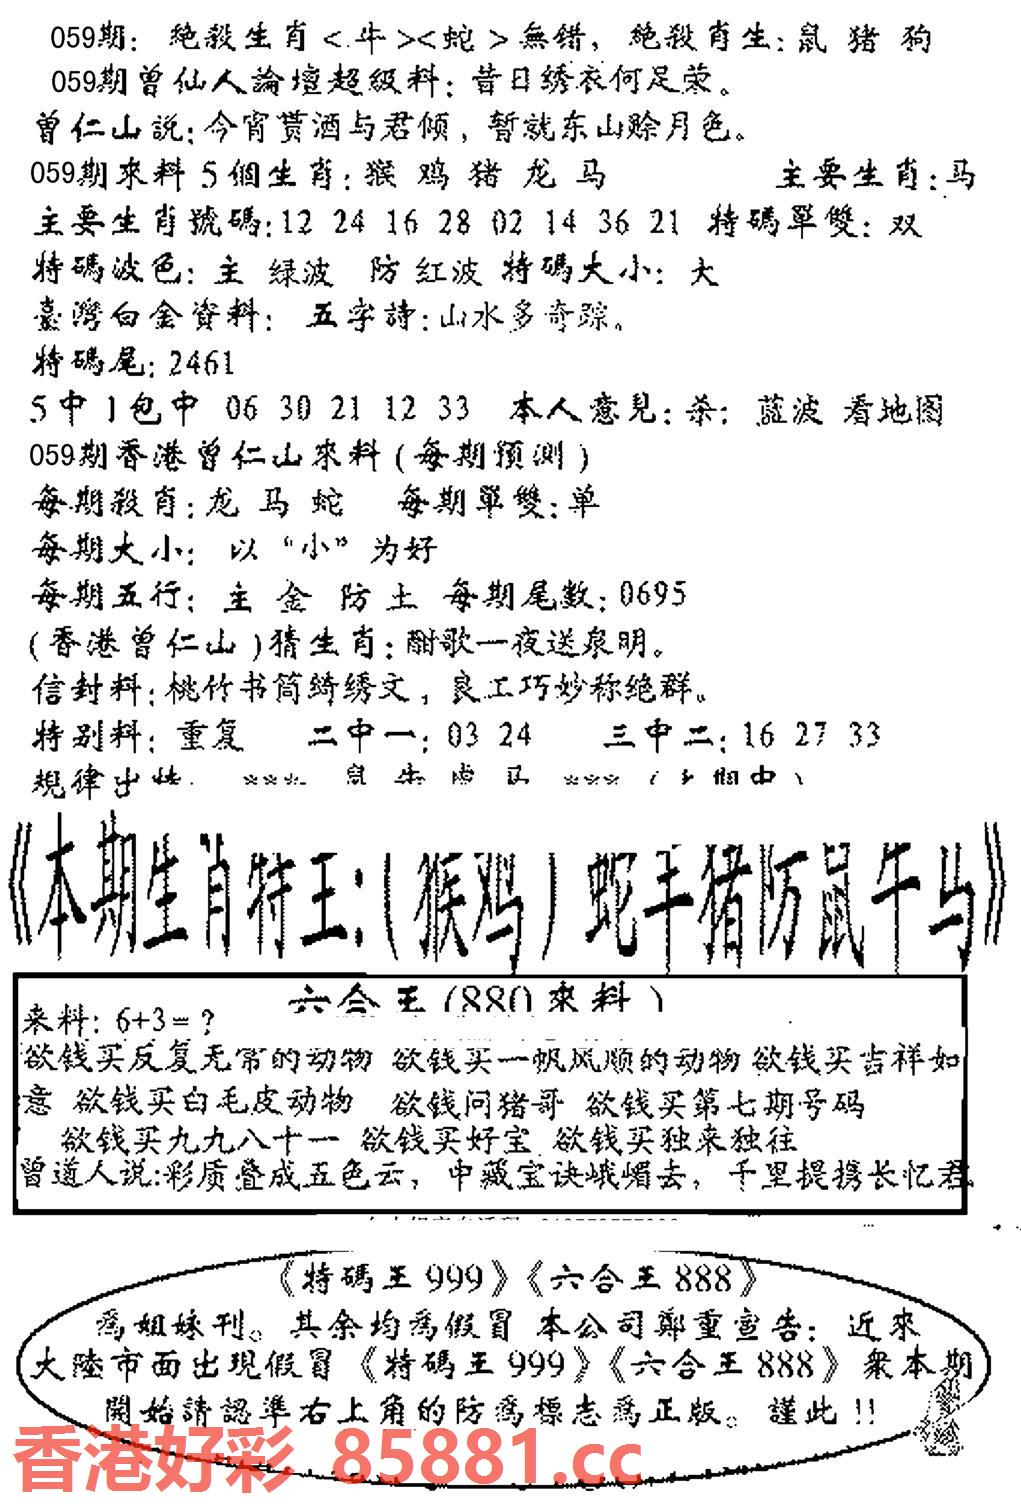 059期: 絶殺生肖<牛><蛇>無错, 絶殺肖生:鼠 猪 狗
059期曾仙人論壇超級料: 昔日绣衣何足荣。
曾仁山説:今宵贳酒与君倾, 暫就东山赊月色。
059期來料5個生肖:猴 鸡 猪 龙 马 主要生肖:马
主要生肖號碼:12 24 16 28 02 14 36 21 特碼單雙: 双
特碼波色: 主 绿波 防 红波 特碼大小: 大
臺灣白金資料: 五字詩:山水多奇踪。
特碼尾:2461
5中1包中 06 30 21 12 33 本人意見:杀: 蓝波 看地图
059期香港曾仁山來料(每期预测)
每期殺肖:龙 马 蛇 每期單雙:单
每期大小: 以“小”为好
每期五行: 主 金 防 土 每期尾数:0695
(香港曾仁山)猜生肖:酣歌一夜送泉明。
信封料:桃竹书筒绮绣文, 良工巧妙称绝群。
特别料: 重复 二中一: 03 24 三中二:16 27 33
規律出特: *** 鼠 牛 虎 马 ***
《本期生肖特王:(猴鸡)蛇羊猪防鼠牛马》
六合王(880來料)
来料: 6+3=?
欲钱买反复无常的动物 欲钱买一帆风顺的动物 欲钱买吉祥如
意 欲钱买白毛皮动物 欲钱问猪哥 欲钱买第七期号码
欲钱买九九八十一 欲钱买好宝 欲钱买独来独往
曾道人说:彩质叠成五色云, 中藏宝诀峨嵋去, 千里提携长忆君
《特碼王999》《六合王888》
為姐妹刊。其余均為假冒 本公司鄭重宣告: 近來
大陸市面出現假冒《特碼王999》《六合王888》衆本期
開始請認準右上角的防為標志為正版。謹此!!
香港好彩 85881.cc